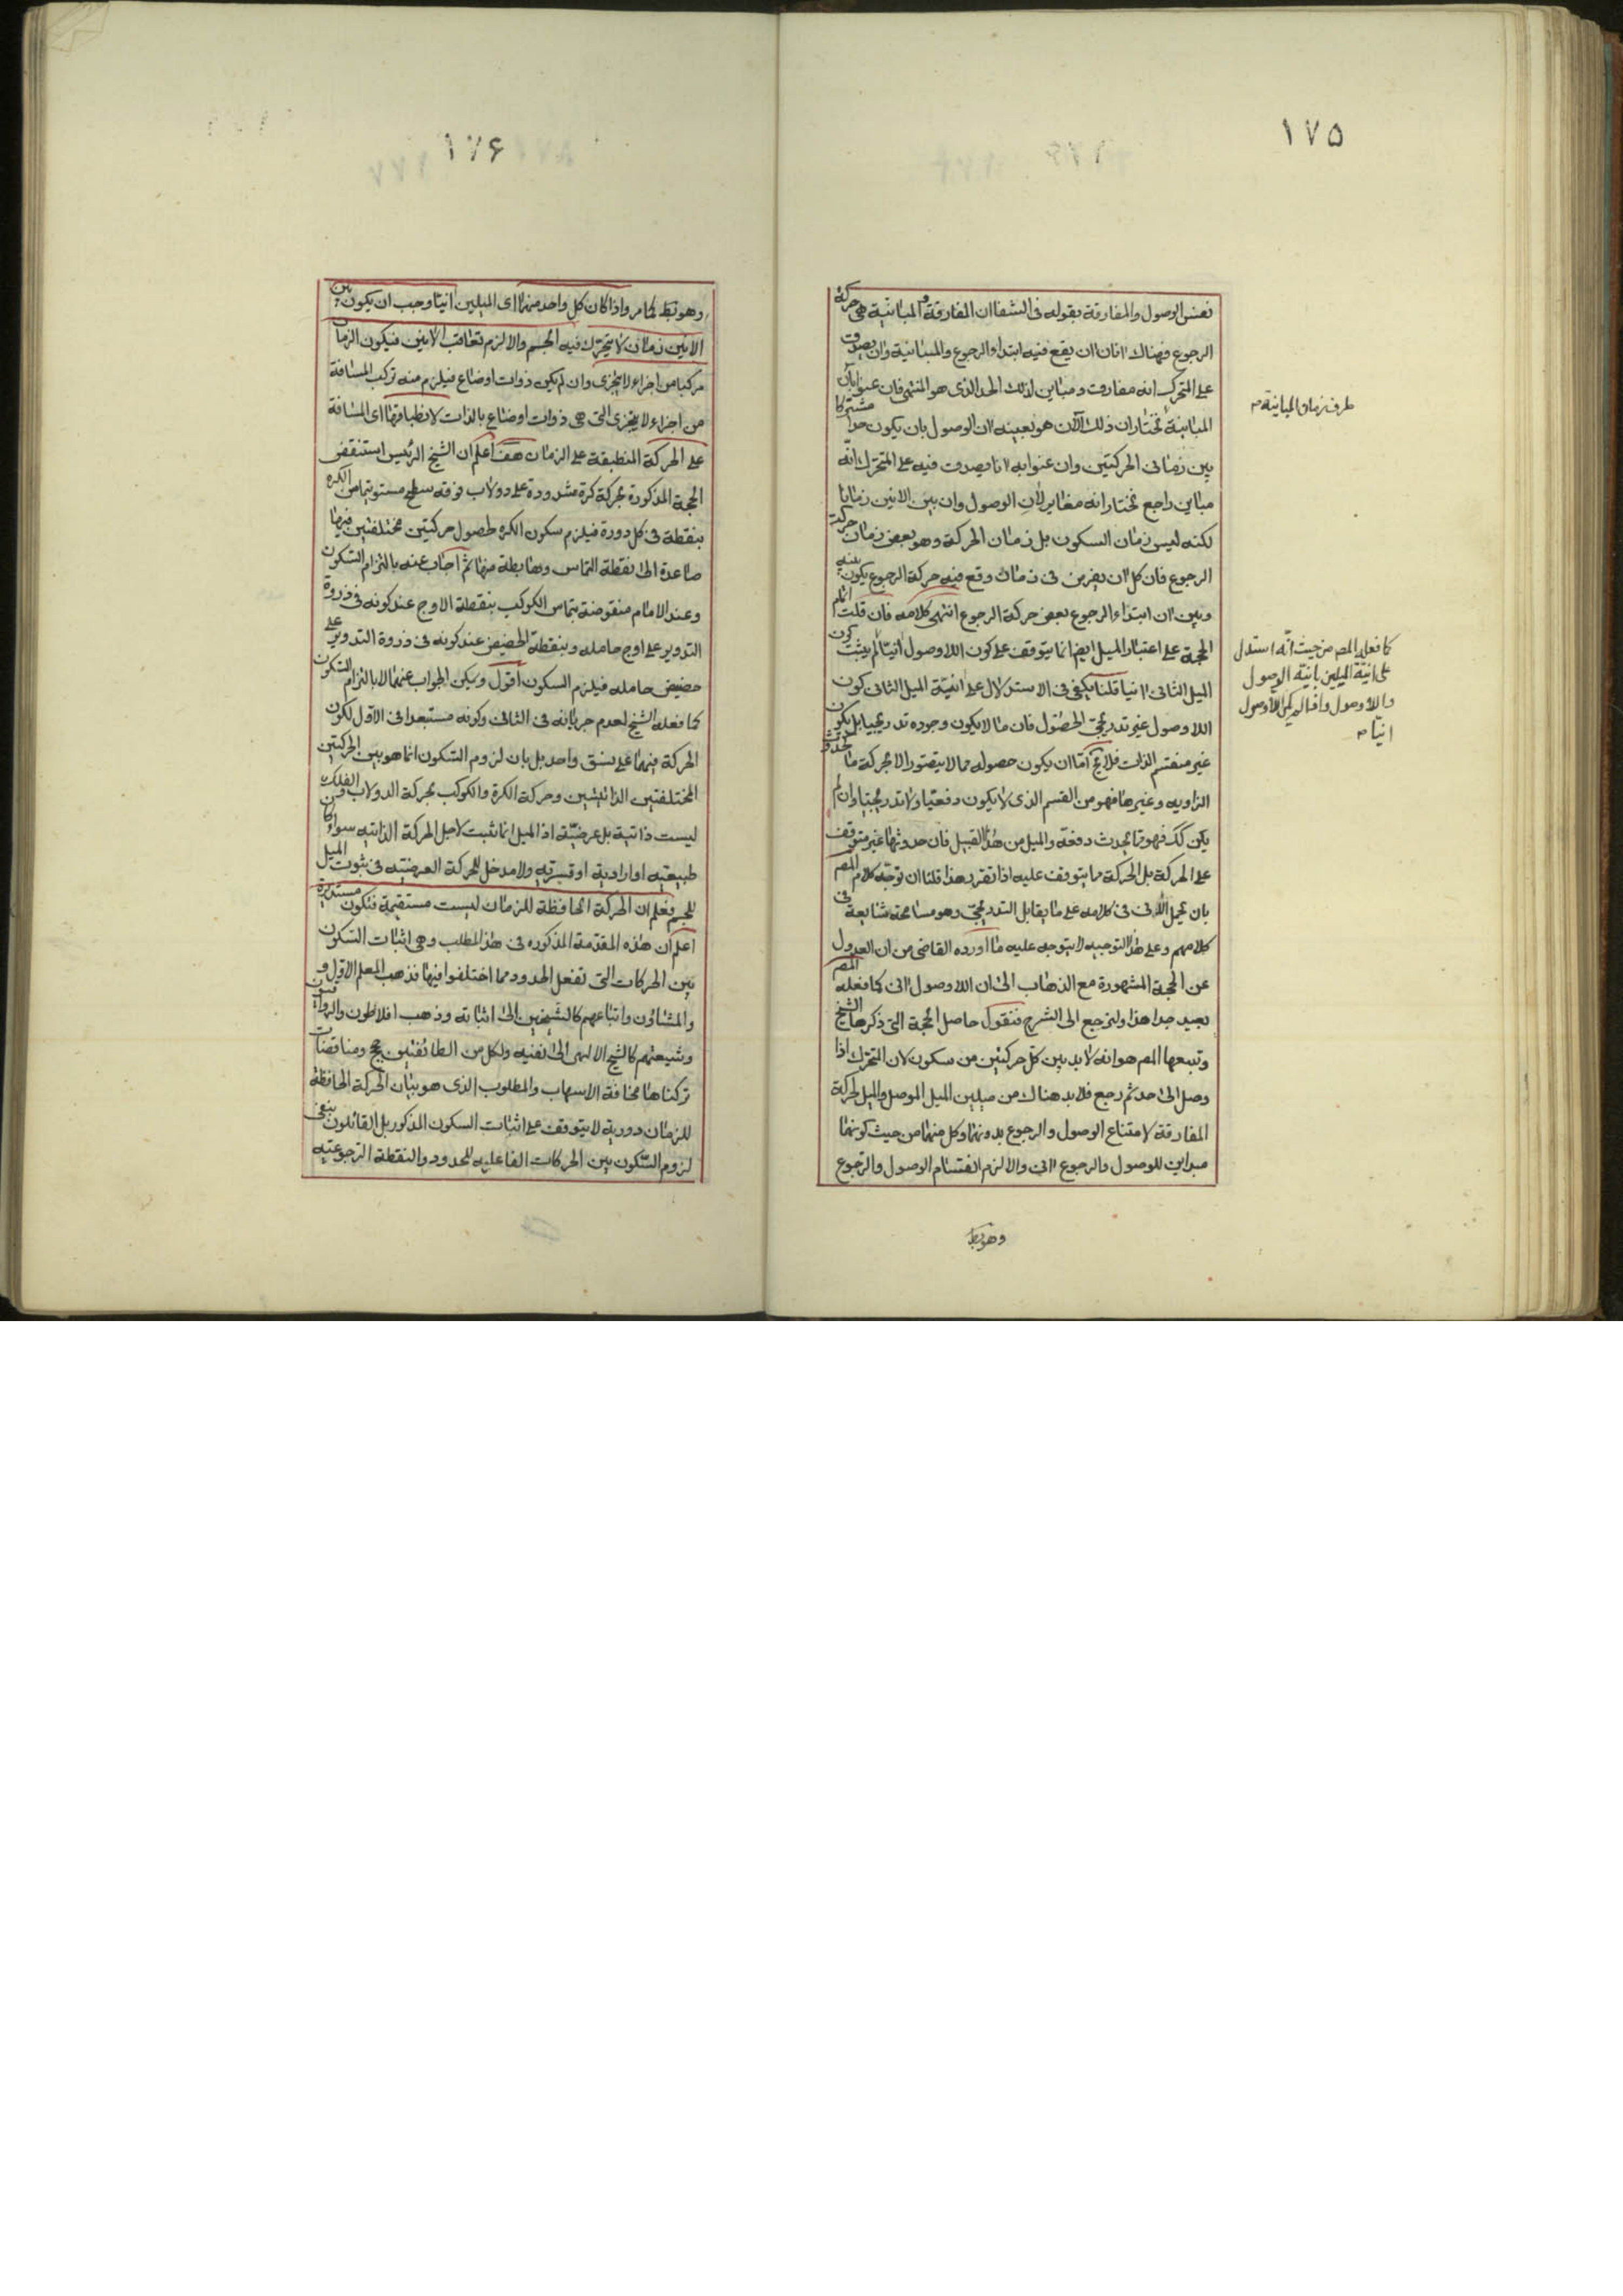 ١٧٥
نفس الوصول والمفارقة بقوله فى الشفا ان المفارقة و المباينة هى حركة
الرجوع فهناك آنان ان يقع فيه ابتداء الرجوع والمباينة وان يصدق
على المتحرك انه مفارق ومباين لذلك الحد الذى هو المنتهى فان عنوا بآن
المباينة نختار ان ذلك الآن هو بعينه ان الوصول بان يكون حدا مشتركا
بين زمانى الحركتين وان عنوا به انا يصدق فيه على المتحرك انه
مباين راجع نختار انه مغاير لان الوصول وان بين الانين زمانا
لكنه ليس زمان السكون بل زمان الحركة وهو بعض زمان حركة
الرجوع فان كل ان يفرض فى زمان وقع فيه حركة الرجوع يكون بينه
وبين ان ابتداء الرجوع بعض حركة الرجوع انتهى كلامه فان قلت اتمام
الحجة على اعتبار الميل ايضا انما يتوقف على كون اللاوصول انيا لم يثبت كون
الميل الثانى انيا قلنا يكفى فى الاستدلال على انية الميل الثانى كون
اللاوصول غير تدريجى الحصول فان ما لا يكون وجوده تدريجيا بل يكون
غير منقسم الذات فلا يخ اما ان يكون حصوله مما لا يتصور الا بحركة ما كحدوث
الزاويه وغيرها فهو من القسم الذى لا يكون دفعيا ولا تدريجيا وان لم
يكن كك فهو مما يحدث دفعة والميل من هذا القبيل فان حدوثها غير متوقف
على الحركة بل الحركة مما يتوقف عليه اذا تقرر هذا قلنا ان توجه كلام المصم
بان يحمل الآنى فى كلامه على ما يقابل التدريجى وهو مسامحة شايعة فى
كلامهم وعلى هذا التوجيه لا يتوجه عليه ما اورده القاضى من ان العدول
عن الحجة المشهورة مع الذهاب الى ان اللاوصول انى كما فعله المصم
بعيد جدا هذا ولنرجع الى الشرح فنقول حاصل الحجة التى ذكرها الشيخ
وتبعها المصم هو انه لا بد بين كل حركتين من سكون لان المتحرك اذا
وصل الى حد ثم رجع فلا بد هناك من ميلين الميل الموصل والميل لحركة
المفارقة لامتناع الوصول والرجوع بدونهما وكل منهما من حيث كونهما
مبداين للوصول والرجوع انى والا لزم انقسام الوصول والرجوع
وهو بط
طرف زمان المباينة م
كما فعله المصم من حيث انه استدل
على انية الميلين بانية الوصول
واللاوصول واذا لم يكن اللاوصول
انيا م
١٧۶
وهو بط لما مر واذا كان كل واحد منهما اى الميلين انيا وجب ان يكون بين
الانين زمان لا يتحرك فيه الجسم والا لزم تعاقب الانين فيكون الزمان
مركبا من اجزاء لا يتجزى وان لم يكن ذوات اوضاع فيلزم منه تركب المسافة
من اجزاء لا يتجزى التى هى ذوات اوضاع بالذات لانطباقها اى المسافة
على الحركة المنطبقة على الزمان هف اعلم ان الشيخ الرئيس استنقض
الحجة المذكورة بحركة كرة مشدودة على دولاب فوقه سطح مستو يتماس الكره
بنقطة فى كل دورة فيلزم سكون الكره لحصول حركتين مختلفتين فيها
صاعدة الى نقطة التماس وهابطة منها ثم اجاب عنه بالتزام السكون
وعند الامام منقوضة بتماس الكوكب بنقطة الاوج عند كونه فى ذروة
التدوير على اوج حامله وبنقطة الحضيض عند كونه فى ذروة التدوير على
حضيض حامله فيلزم السكون اقول ويمكن الجواب عنهما لا بالتزام السكون
كما فعله الشيخ لعدم جريانه فى الثانى وكونه مستبعدا فى الاول لكون
الحركة فيهما على نسق واحد بل بان لزوم السكون انما هو بين الحركتين
المختلفتين الذاتيتين وحركة الكرة والكوكب بحركة الدولاب والفلك
ليست ذاتية بل عرضية اذ الميل انما ثبت لاجل الحركة الذاتيه سواء كان
طبيعيه او ارادية او قسريه ولا مدخل للحركة العرضيه فى ثبوت الميل
للجسم فعلم ان الحركة الحافظة للزمان ليست مستقيمة فتكون مستديرة
اعلم ان هذه المقدمة المذكوره فى هذا المطلب وهى اثبات السكون
بين الحركات التى تفعل الحدود مما اختلفوا فيها فذهب المعلم الاول و
والمشاؤن واتباعهم كالشيخين الى اثباته وذهب افلاطون والرواقيون
وشيعتهم كالشيخ الالهى الى نفيه ولكل من الطائفتين حجج ومناقضات
تركناها مخافة الاسهاب والمطلوب الذى هو بيان الحركة الحافظة
للزمان دورية لا يتوقف على اثبات السكون المذكور بل القائلون بنفى
لزوم السكون بين الحركات الفاعليه للحدود والنقطة الرجوعيه